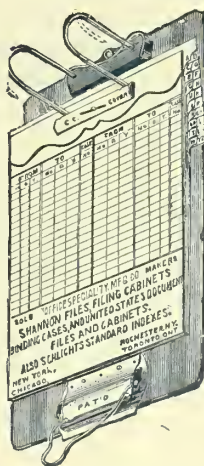 C.C. COVER
FROM TO DATE FROM TO
SOLE OFFICE SPECIALTY MFG CO MAKERS
SHANNON FILES, FILING CABINETS
BINDING CASES, AND UNITED STATES DOCUMENT
FILES AND CABINETS.
ALSO SCHLICHTS STANDARD INDEXES.
NEW YORK, ROCHESTER N.Y.
CHICAGO, TORONTO ONT
PAT'D